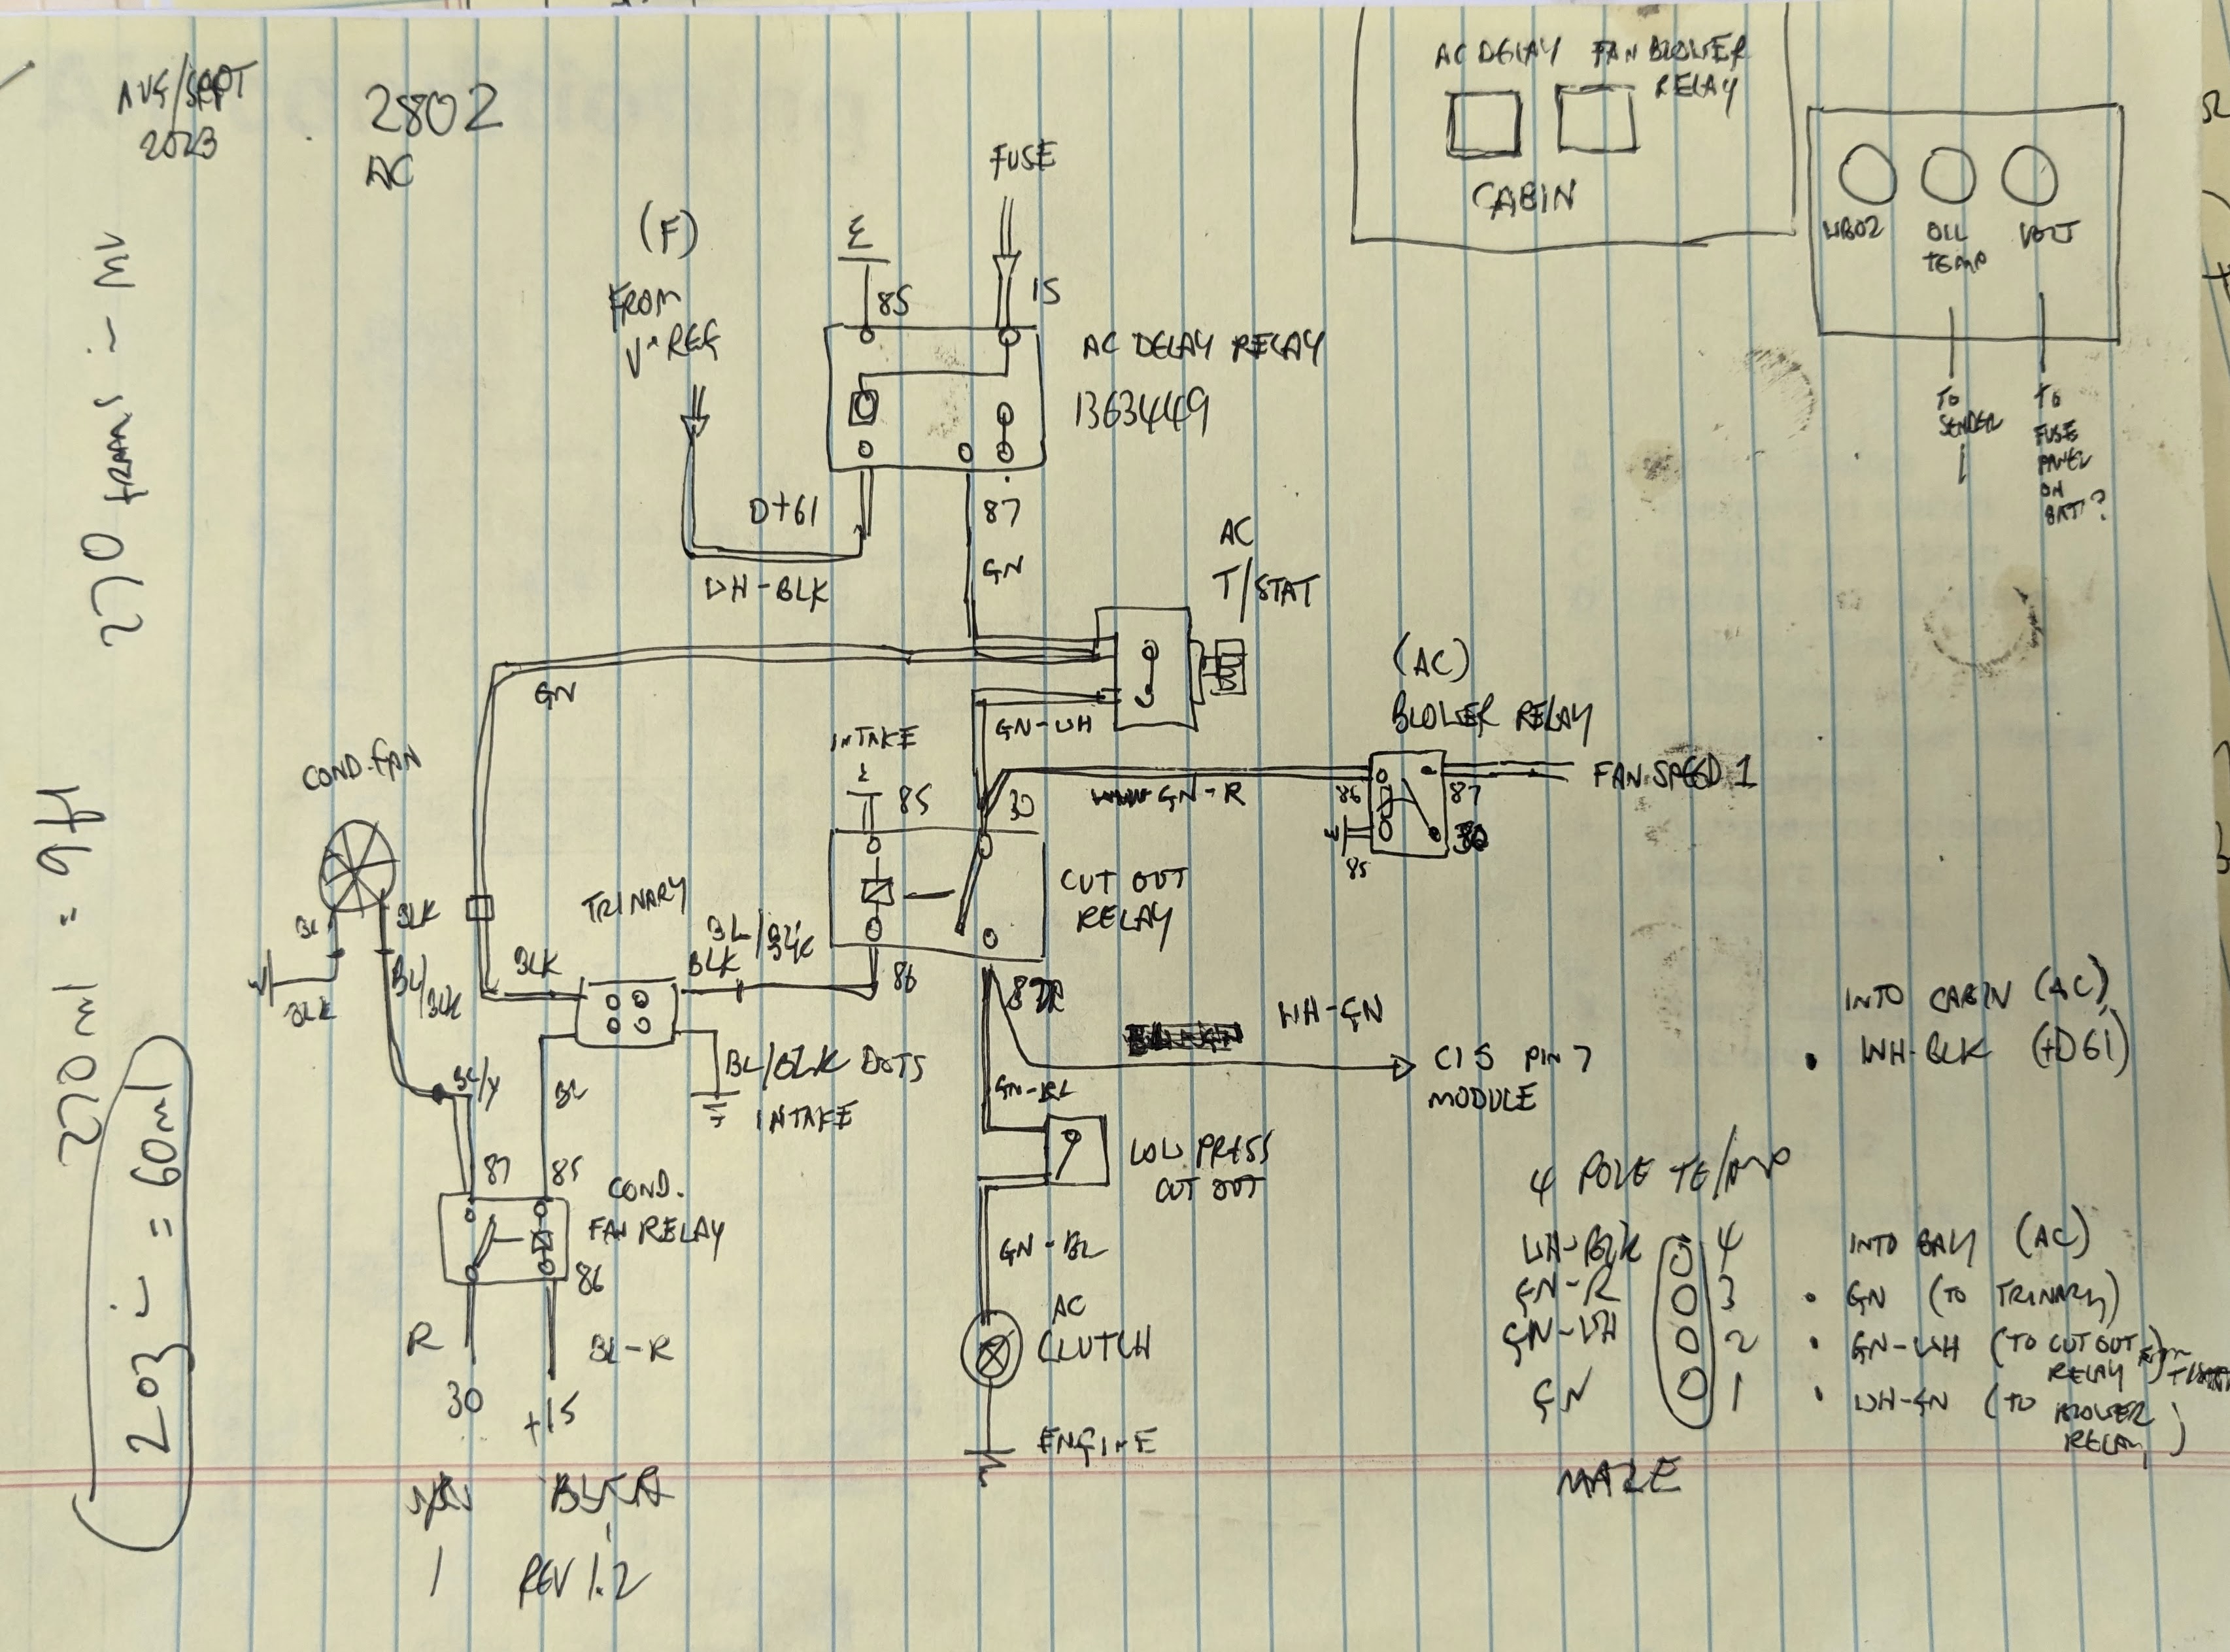 AUG/SEPT
2023
2802
AC
FUSE
(F)
FROM
V-REG
E
85
15
AC DELAY RELAY
13634449
D+61
WH-BLK
87
GN
AC
T/STAT
AC DELAY
FAN BLOWER
RELAY
CABIN
WBO2
OIL
TEMP
VOLT
TO
SENDER
TO
FUSE
PANEL
ON
BATT?
GN
GN-WH
INTAKE
85
30
GN-R
(AC)
BLOWER RELAY
86
87
85
30
FAN SPEED 1
COND. FAN
BLK
BLK
BL/
BLK
BLK
TRINARY
BLK
BL/
BLK
86
CUT OUT
RELAY
87
WH-GN
CIS PIN 7
MODULE
BL/Y
BL
BL/BLK DOTS
INTAKE
GN-BL
LOW PRESS
CUT OUT
87
85
COND.
FAN RELAY
86
GN-BL
AC
CLUTCH
ENGINE
R
30
BL-R
+15
1
REV 1.2
INTO CABIN (AC)
• WH-BLK (+D61)
4 POLE TE/AMP
WH-BLK 4
GN-R 3
GN-WH 2
GN 1
MALE
INTO BAY (AC)
• GN (TO TRINARY)
• GN-WH (TO CUT OUT
RELAY FROM T/STAT)
• WH-GN (TO
BLOWER
RELAY)
270 trans
270 ml = 9 fl
203 = 60ml